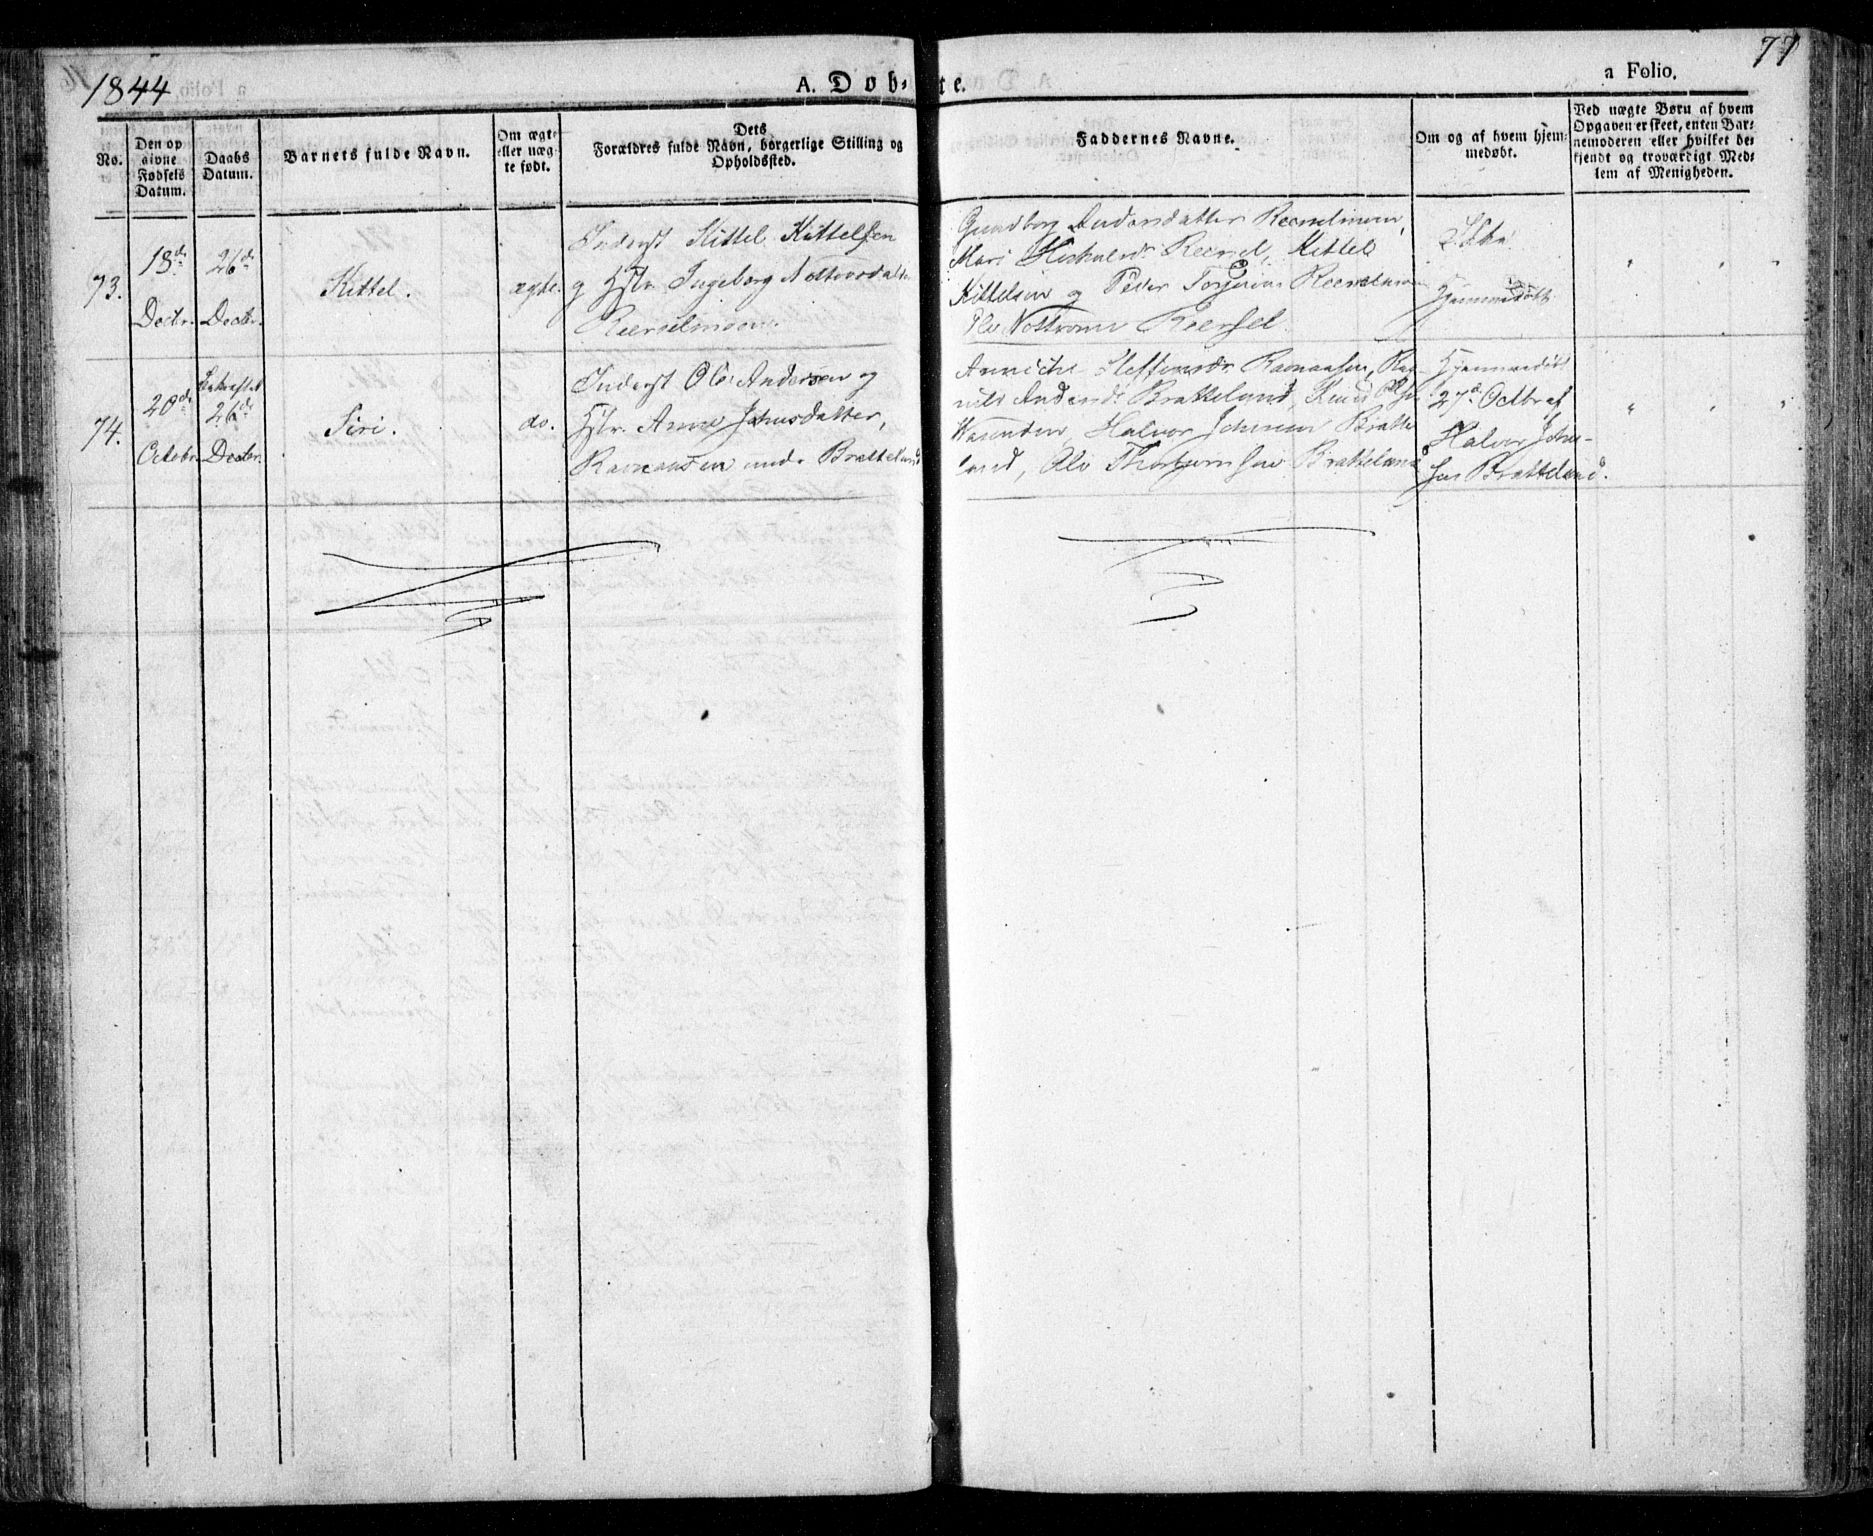 1844
A. Døb-te.
77
a Folio.
No.
Den op
givne
Fødsels
Datum.
Daabs
Datum.
Barnets fulde Navn.
Om ægte
eller uæg-
te født.
Dets
Forældres fulde Navn, borgerlige Stilling og
Opholdssted.
Faddernes Navne.
Om og af hvem hjem-
medøbt.
Ved uægte Børn af hvem
Opgaven er skeet, enten Bar-
nemoderen eller hvilket be-
kjendt og troværdigt Med-
lem af Menigheden.
73.
18de
Decbr.
26de
Decbr.
Kittel.
ægte.
Inderst Kittel Kittelsen
og Hstr. Ingeborg
Gundborg Andersdatter
Mari Kittel
Kittelsen og Peder
Ole
Ikke
Hjemmedøbt
74.
20de
Octobr.
Bekræftet
26de
Decbr.
Siri.
do.
Inderst Ole Andersen og
Hstr. Anne Johnsdatter,
Ravnaasen under Bratteland
Steffensdr Ravnaasen,
Andersdr Bratteland, Knud
Halvor Johnsen Bratte
land, Ole Bratteland
Hjemmedøbt
27de Octbr af
Halvor John-
sen Bratteland.